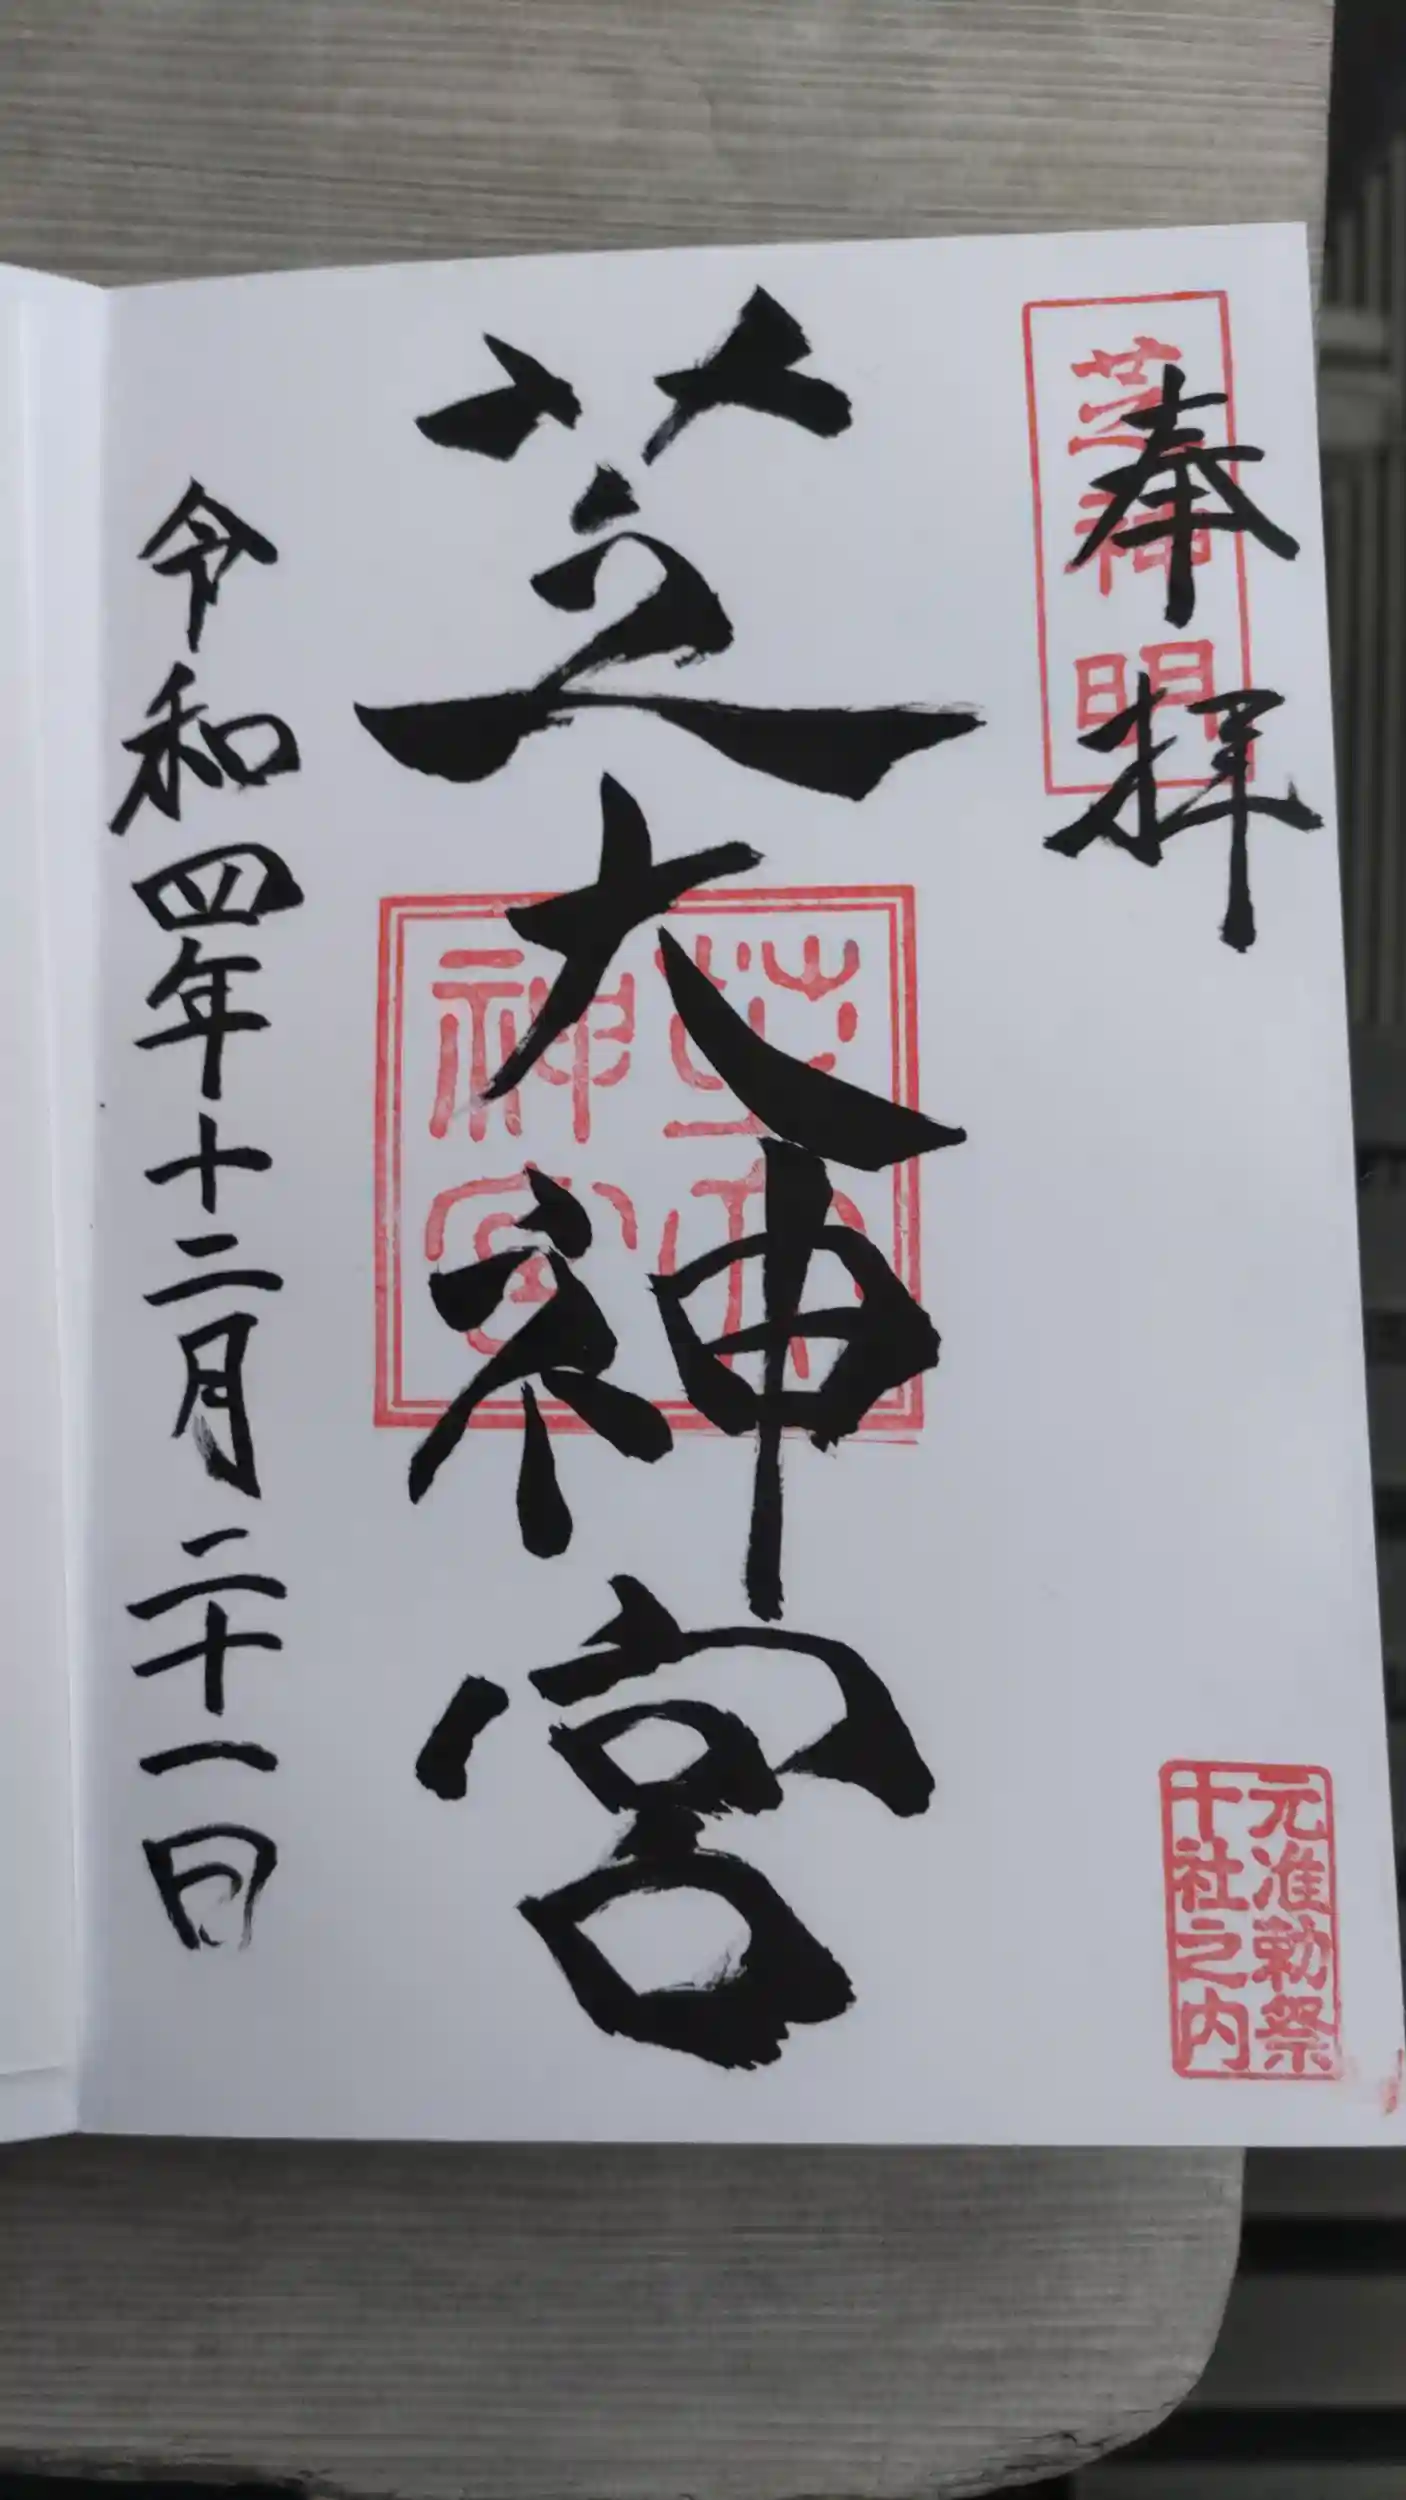 奉拝
芝神明
元准勅祭
十社之内
芝大神宮
芝大
神宮
令和四年十二月二十一日